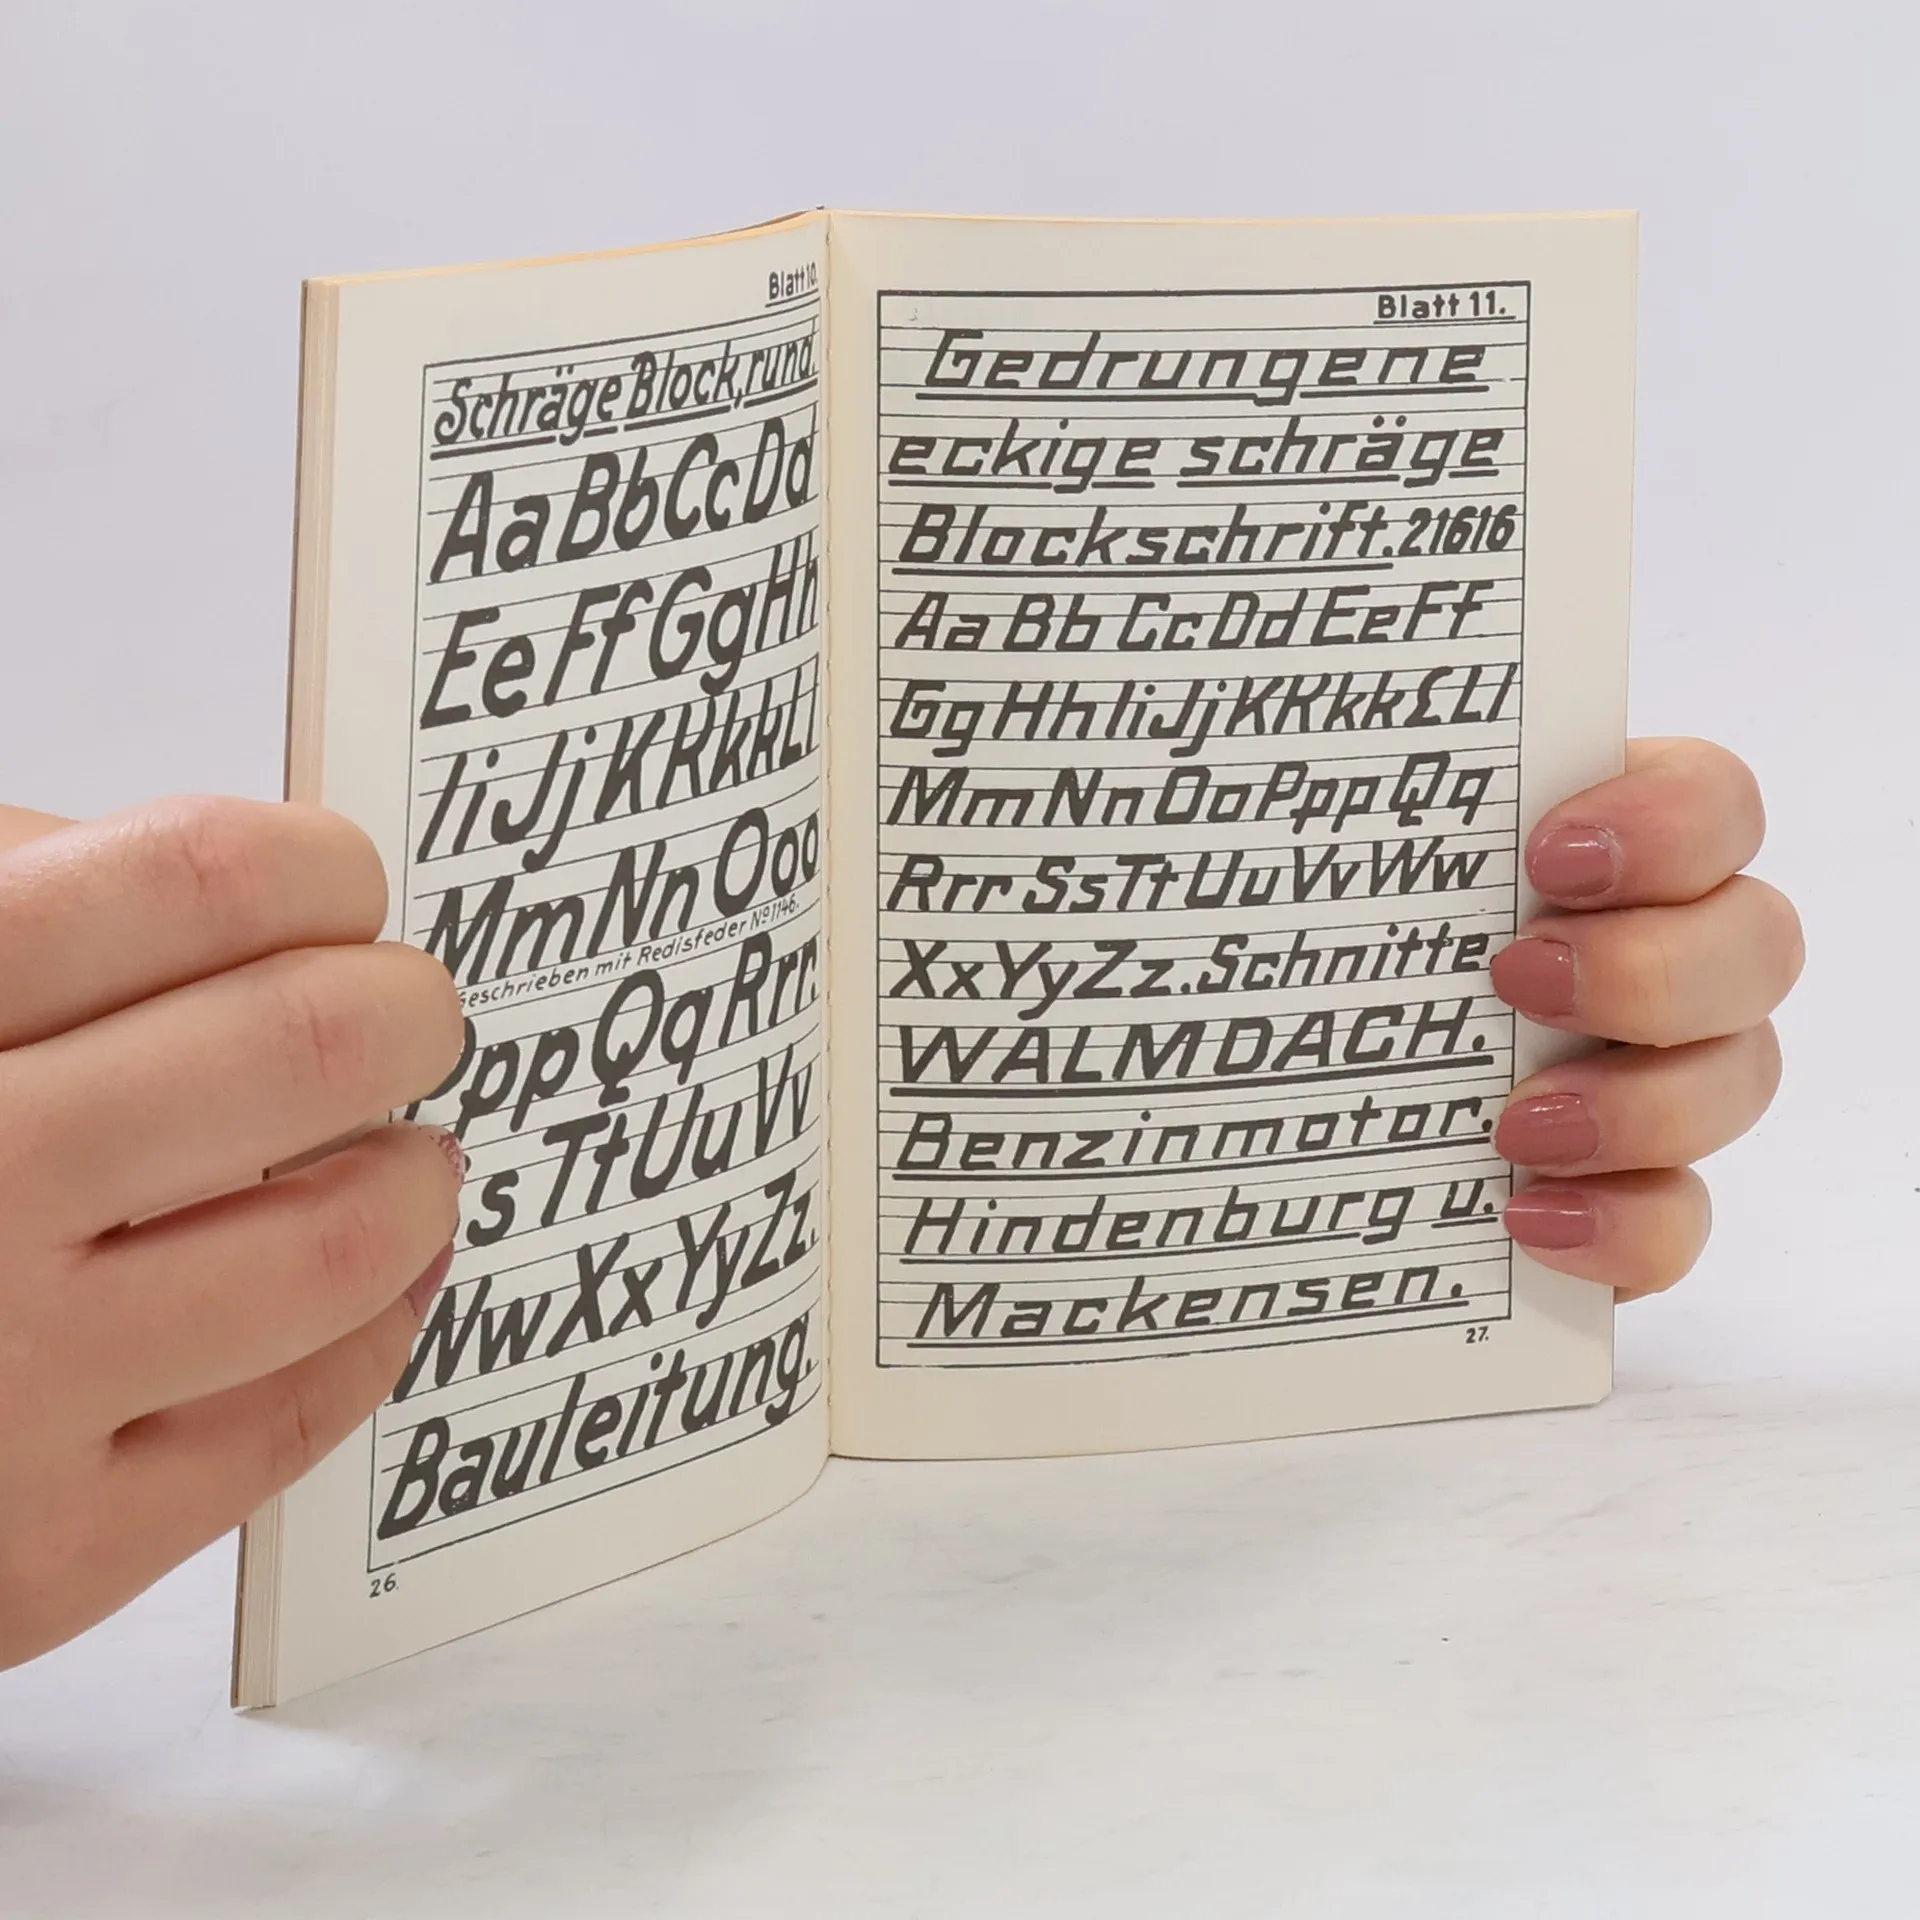 Blatt 10.
Schräge Block, rund.
Aa Bb Cc Dd
Ee Ff Gg Hh
Ii Jj K K k k L l
Mm Nn O o o
Geschrieben mit Redisfeder No 1146.
Ppp Qq Rrr.
s Tt Uu Vv
Ww Xx Yy Zz.
Bauleitung.
26.
Blatt 11.
Gedrungene
eckige schräge
Blockschrift. 21616
Aa Bb Cc Dd Ee Ff
Gg Hh Ii Jj K K k k £ L l
Mm Nn Oo Ppp Qq
Rrr Ss Tt Uu Vv Ww
Xx Yy Zz. Schnitte.
WALMDACH.
Benzinmotor.
Hindenburg u.
Mackensen.
27.